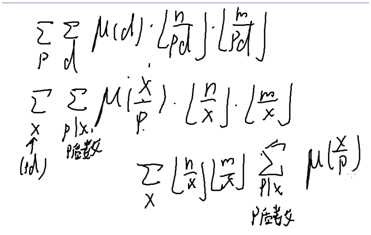 ∑_p ∑_d μ(d)·⌊n/pd⌋·⌊m/pd⌋
∑_x ∑_{p|x, p是素数} μ(x/p)·⌊n/x⌋·⌊m/x⌋
↑
(pd)
∑_x ⌊n/x⌋⌊m/x⌋ ∑_{p|x p是素数} μ(x/p)